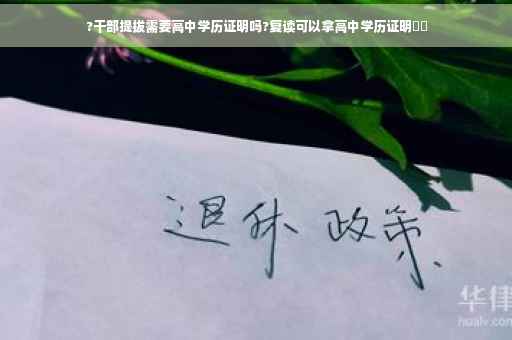 ?干部提拔需要高中学历证明吗?复读可以拿高中学历证明▯▯
退休 政策
华律
hualv.com